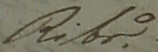 Ribr.º